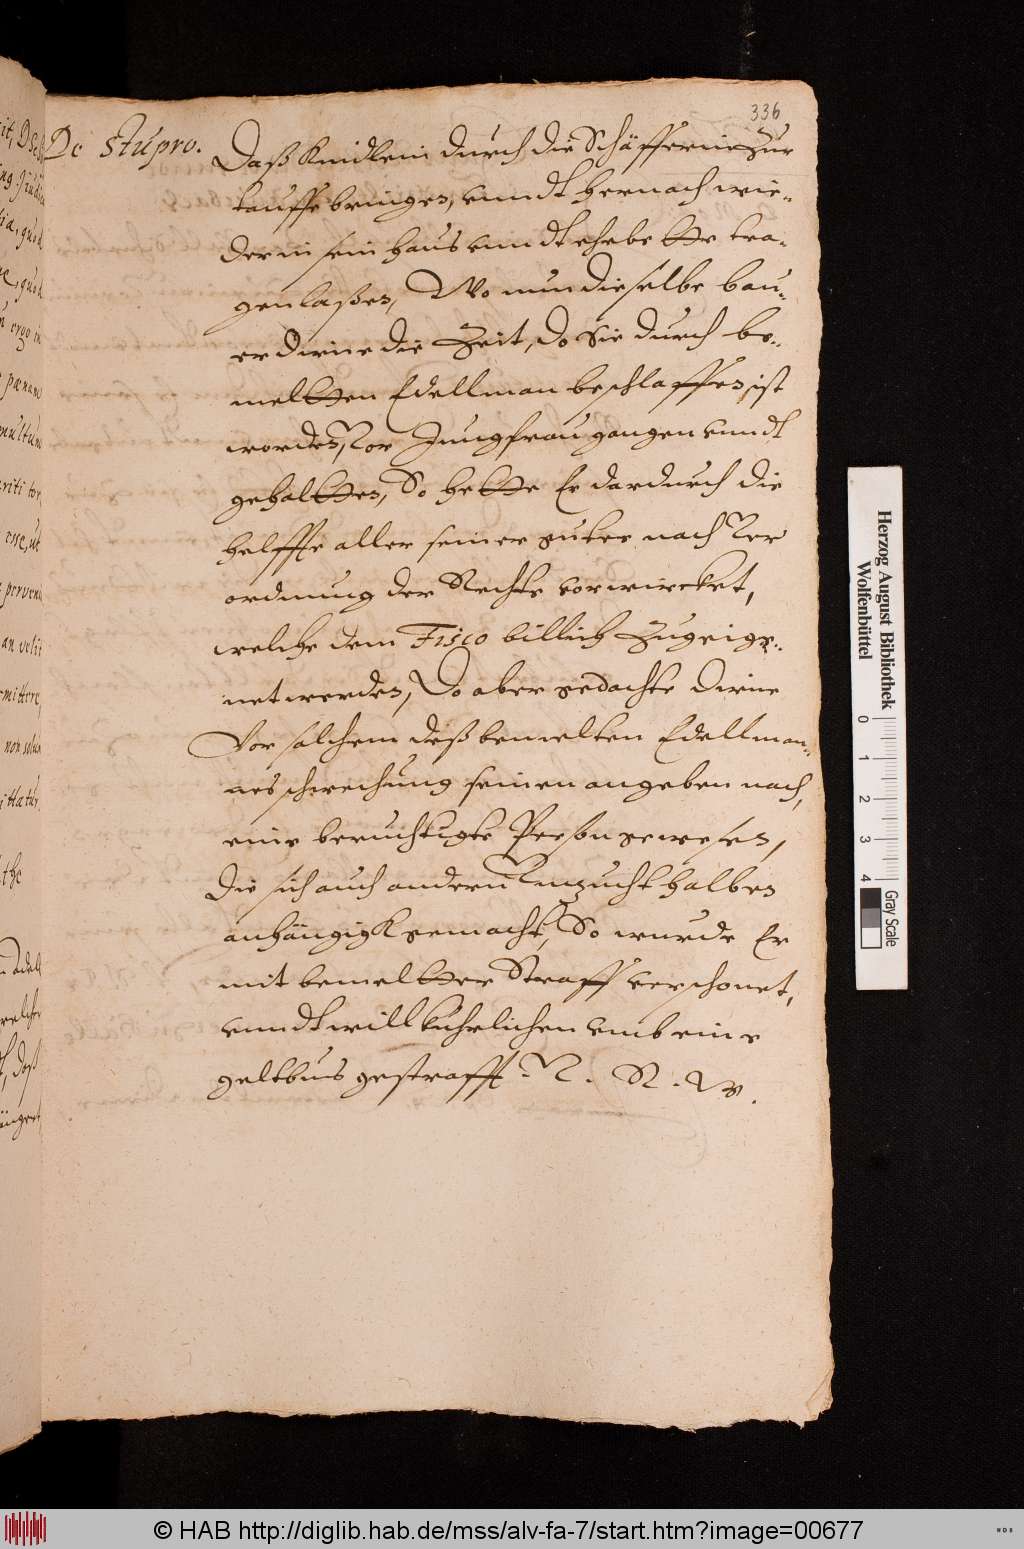 336
De Stupro.
Daß Kindlein durch die Schäfferin Zur
tauffe bringen, vnndt hernach wie-
der in sein hauß vnndt ehebette tra-
gen laßen, Wo nun dieselbe bau-
er dirne die Zeit, do Sie durch be-
melten Edellman beschlaffen, ist
worden, Vor Jungfrau gangen vnndt
gehalten, So hette Er dardurch die
helffte aller seiner guter nach Ver
ordnung der Rechte vorwircket,
welche dem Fisco billich Zugeige-
net werden, Do aber gedachte dirne
Vor solchem deß bemelten Edellman-
nes schwechung seinen angeben nach,
eine beruchtigte Person gewesen,
die sich auch andern Vnzucht halben
anhängigk gemacht, So wurde Er
mit bemelter Straff verschonet,
vnndt willkuhrlichen vmb eine
geltbus gestrafft. V. R. W.
Herzog August Bibliothek
Wolfenbüttel
0 1 2 3 4
Gray Scale
© HAB http://diglib.hab.de/mss/alv-fa-7/start.htm?image=00677